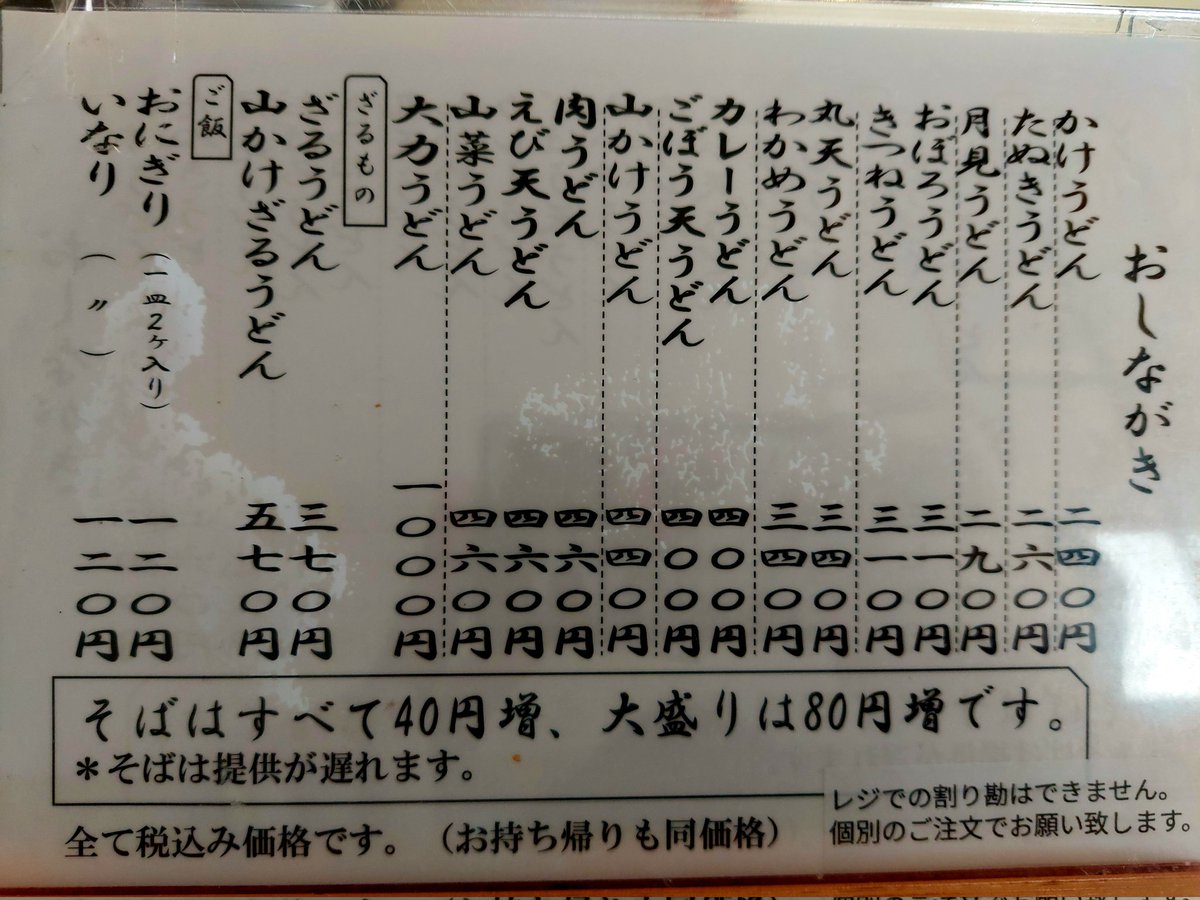 おしながき
かけうどん 二四〇円
たぬきうどん 二六〇円
月見うどん 二九〇円
おぼろうどん 三一〇円
きつねうどん 三一〇円
丸天うどん 三四〇円
わかめうどん 三四〇円
カレーうどん 四〇〇円
ごぼう天うどん 四〇〇円
山かけうどん 四四〇円
肉うどん 四六〇円
えび天うどん 四六〇円
山菜うどん 四六〇円
大力うどん 一〇〇〇円
ざるもの
ざるうどん 三七〇円
山かけざるうどん 五七〇円
ご飯
おにぎり(一皿2ヶ入り) 一二〇円
いなり(〃) 一二〇円
そばはすべて40円増、大盛りは80円増です。
*そばは提供が遅れます。
全て税込み価格です。(お持ち帰りも同価格)
レジでの割り勘はできません。
個別のご注文でお願い致します。